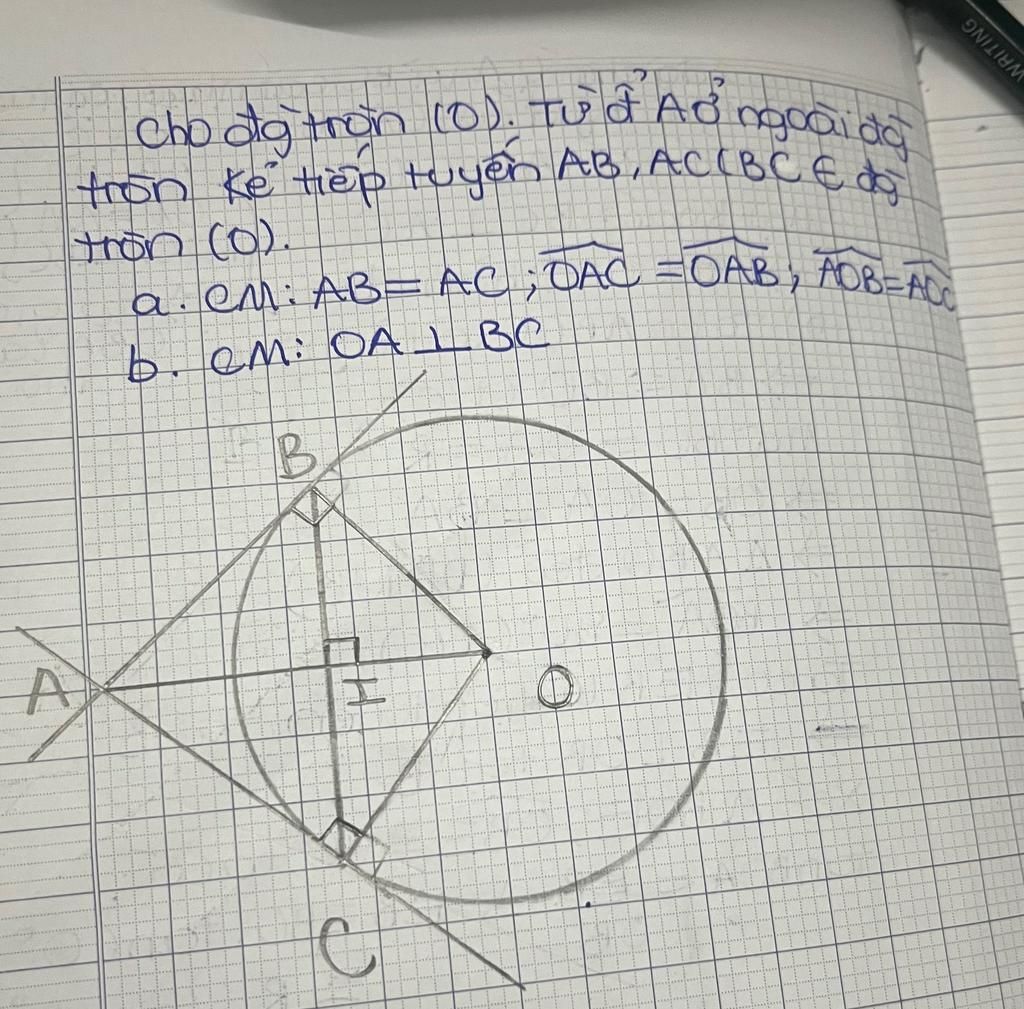 cho đg tròn (O). Từ đ' A ở ngoài đg
tròn kẻ tiếp tuyến AB, AC (BC ∈ đg
tròn (O).
a. CM: AB = AC ; OAC = OAB ; AOB = AOC
b. CM: OA ⊥ BC
B
A
I
O
C
WRITING